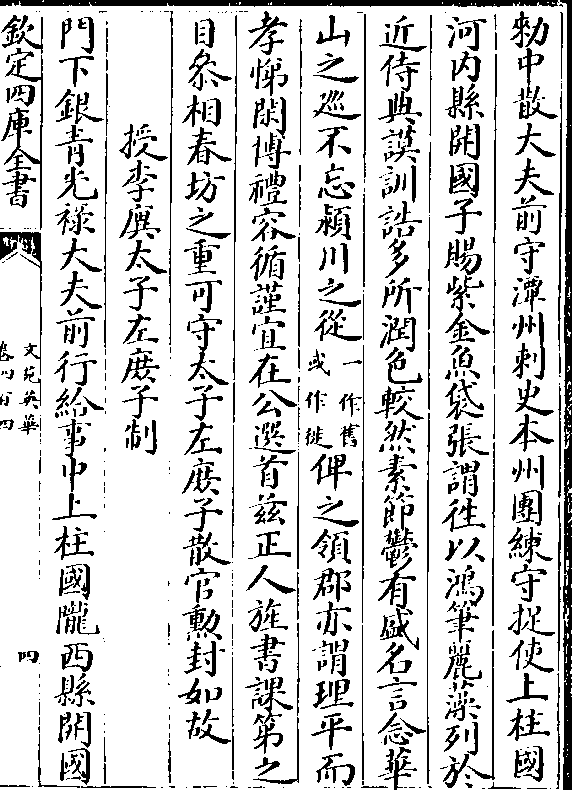 勅中散大夫前守潭州刺史本州團練守捉使上柱國
河内縣開國子賜紫金魚袋張謂徃以鴻筆麗藻列於
近侍典謨訓誥多所潤色較然素節鬱有盛名言念華
山之巡不忘潁川之從一作舊或作徙俾之領郡亦謂理平而
孝悌閑博禮容循謹宜在公選首兹正人旌書課第之
目叅相春坊之重可守太子左庶子散官勲封如故
授李廙太子左庶子制
門下銀青光祿大夫前行給事中上柱國隴西縣開國
欽定四庫全書
文苑英華
卷四百四
四